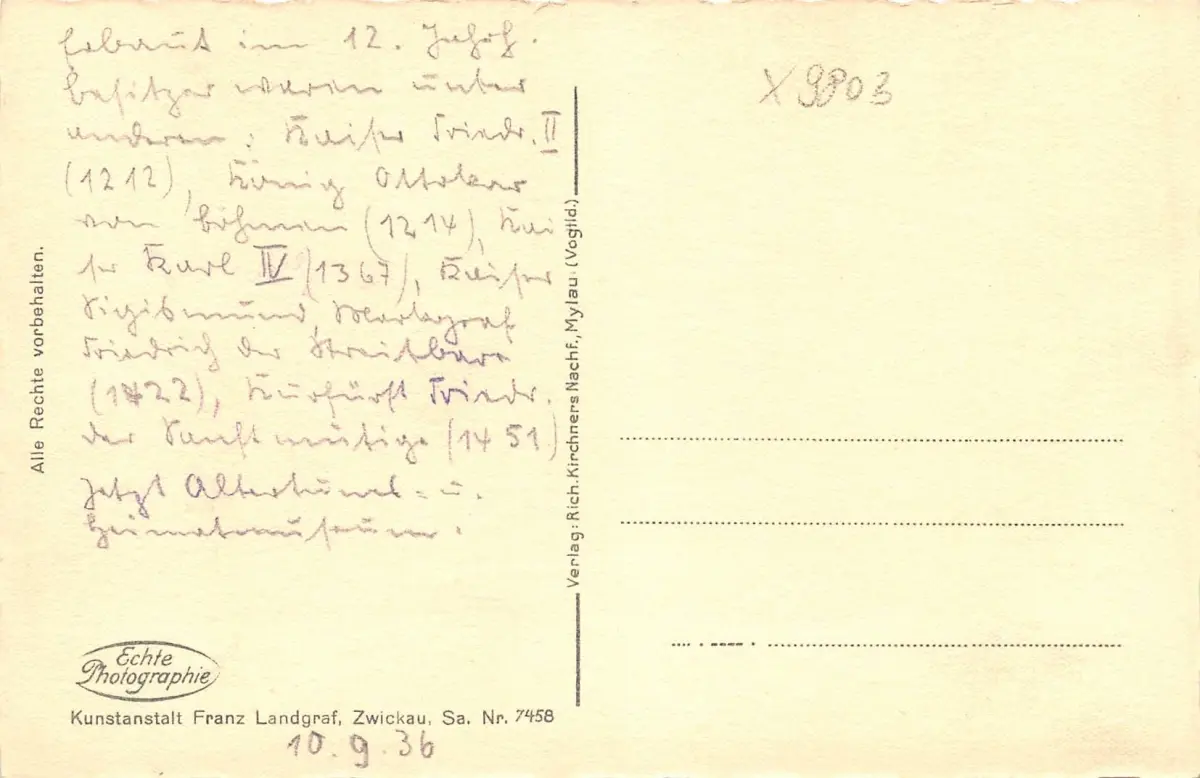 Erbaut im 12. Jahrh.
besitzer waren unter
anderem: Kaiser Friedr. II
(1212), König Ottokar
von böhmen (1214), Kai
ser Karl IV (1367), Kaiser
Sigismund, Markgraf
Friedrich der Streitbare
(1422), Kurfürst Friedr.
der Sanftmütige (1451)
Jetzt Altertums- u.
Heimatmuseum.
Alle Rechte vorbehalten.
Echte
Photographie
Kunstanstalt Franz Landgraf, Zwickau, Sa. Nr. 7458
10.9.36
Verlag: Rich. Kirchners Nachf., Mylau (Vogtld.)
X 9803